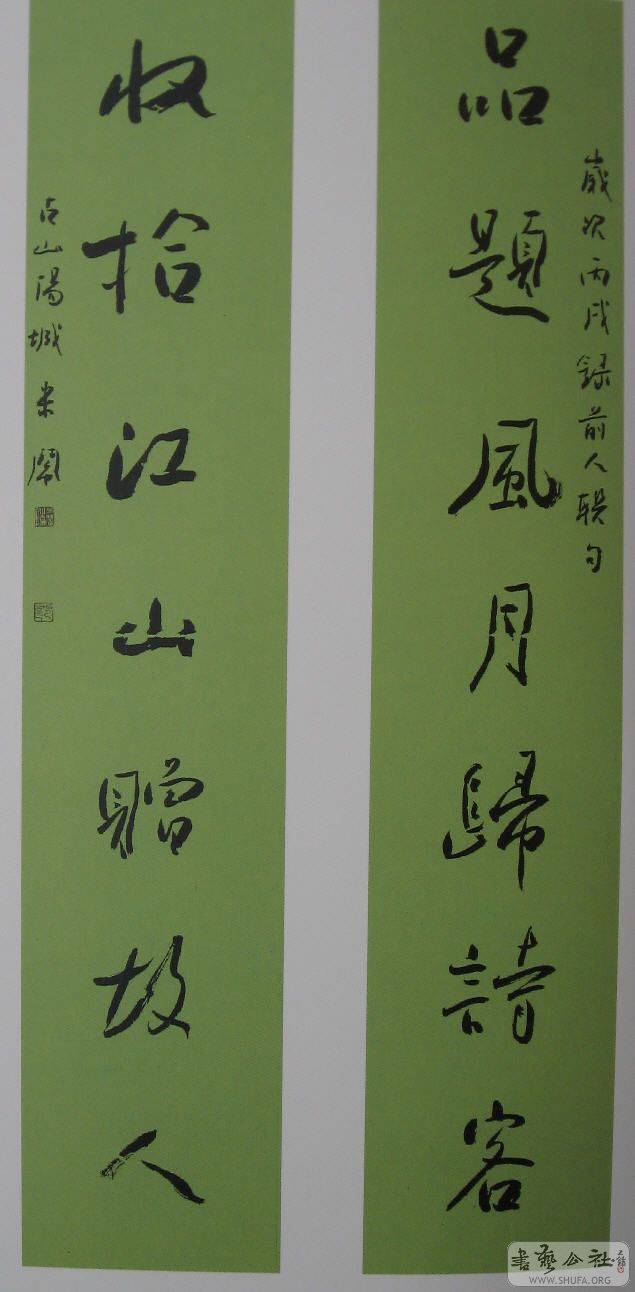 歲次丙戌録前人聯句
品題風月歸詩客
收拾江山贈故人
古山陽城米鬧
書藝公社
WWW.SHUFA.ORG